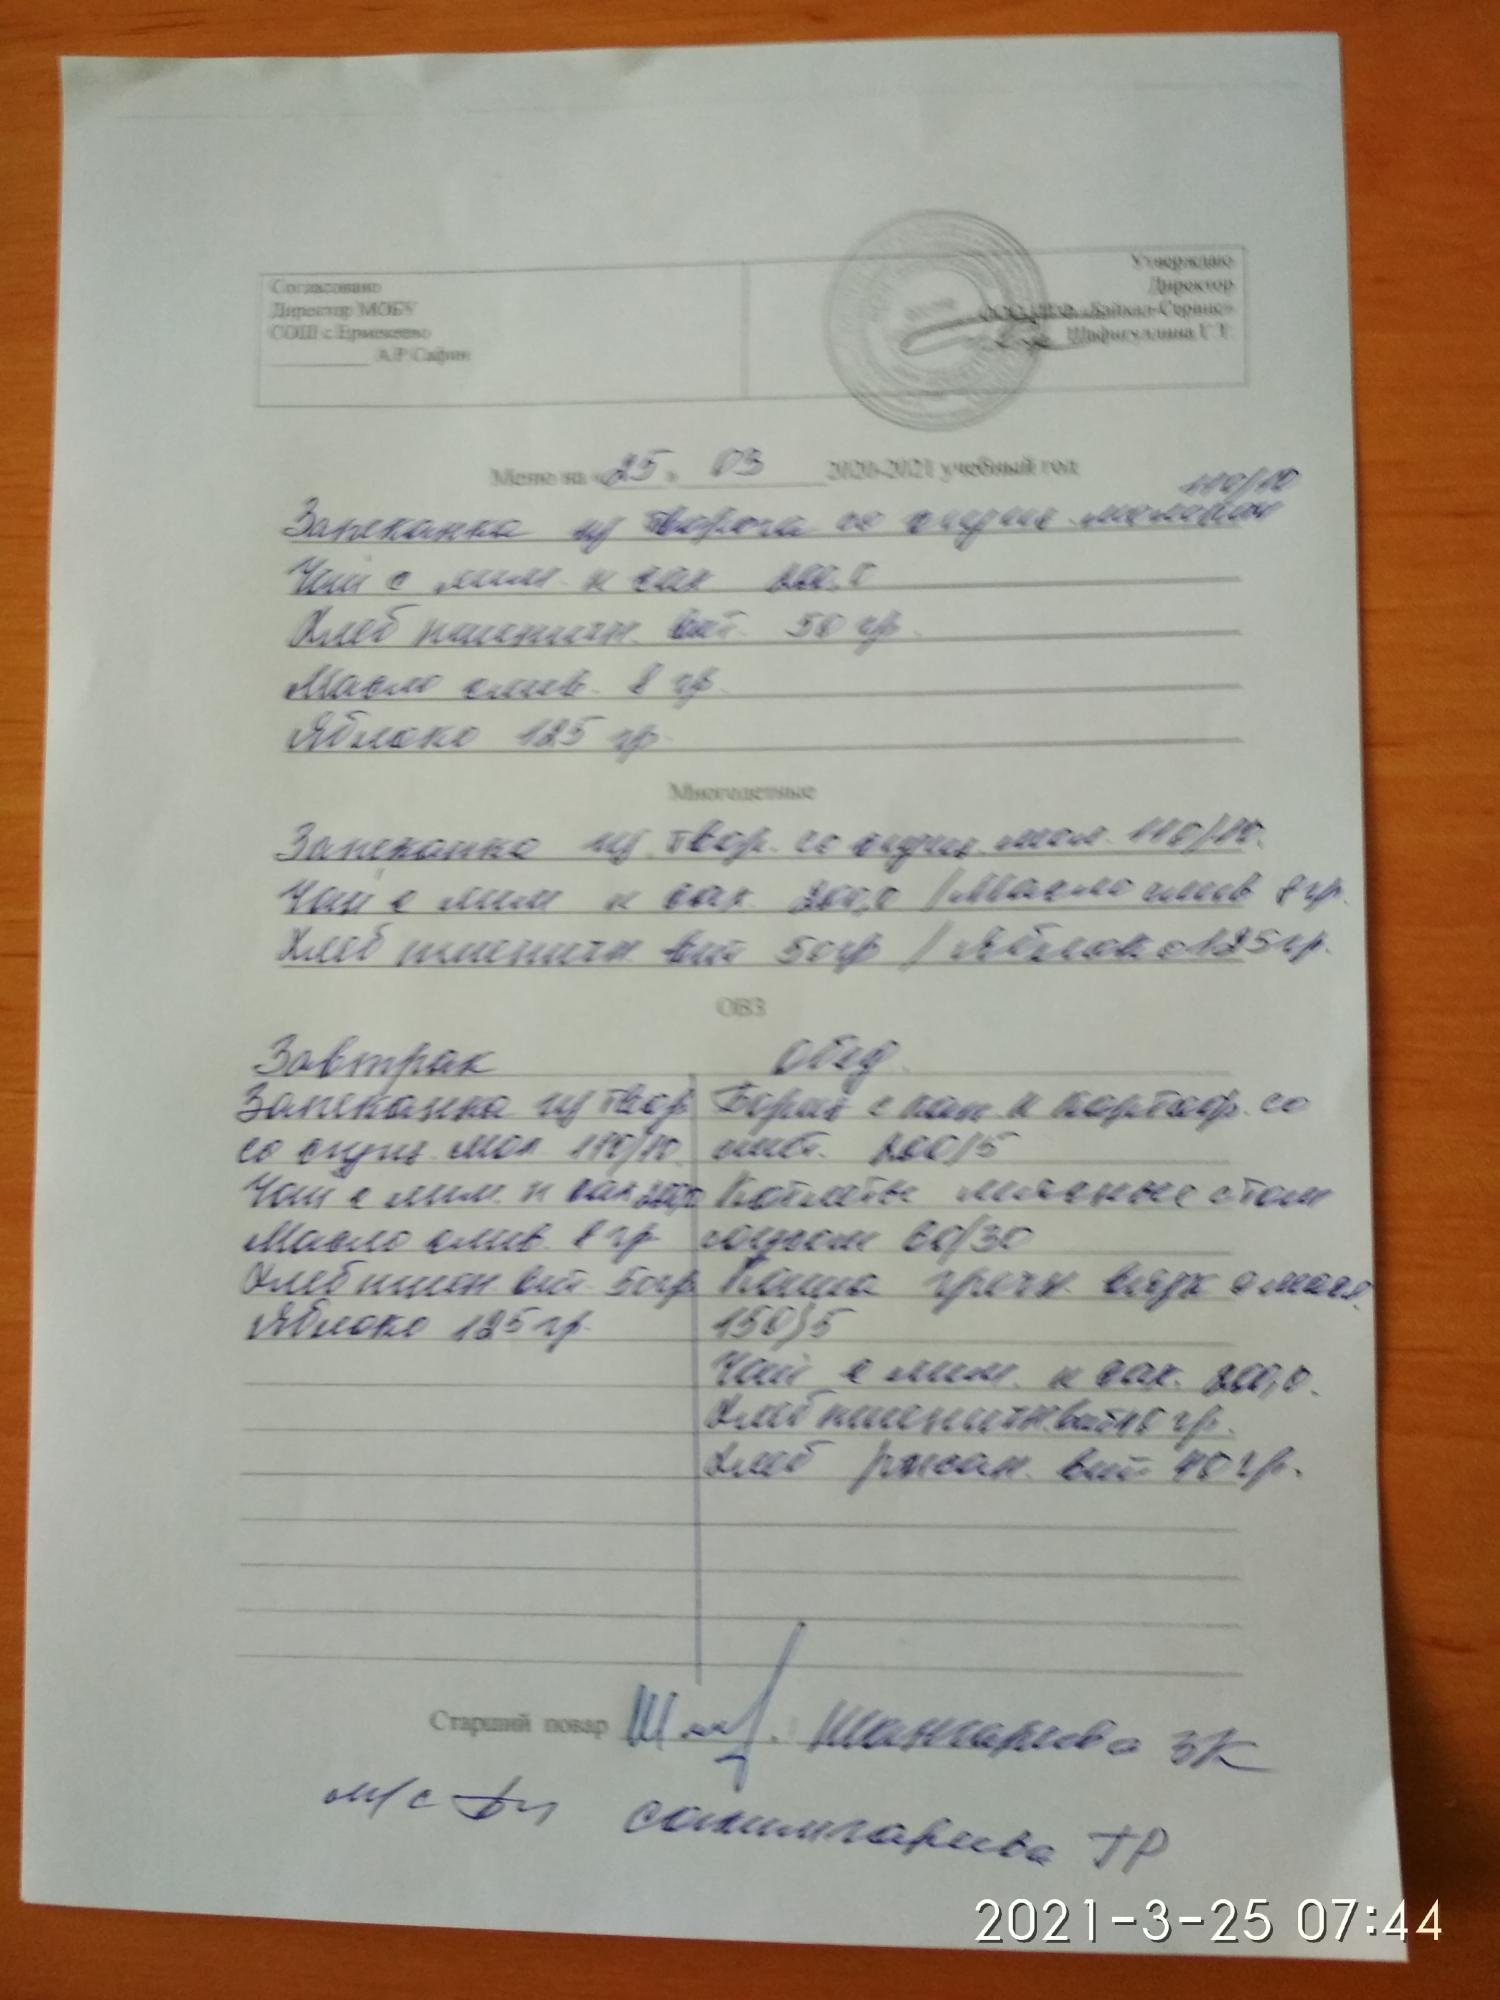 Согласовано
Директор МОБУ
СОШ с.Ермекеево
А.Р.Сафин
Утверждаю
Директор
«Байкал-Сервис»
Шафигуллина Г.Т.
Меню на «25» 03 2020-2021 учебный год
110/10
Запеканка из творога со сгущен. молоком
Чай с лим. и сах. 200,0
Хлеб пшеничн. вит. 50 гр.
Масло слив. 8 гр.
Яблоко 125 гр.
Многодетные
Запеканка из твор. со сгущ. мол. 110/10.
Чай с лим и сах. 200,0 / Масло слив 8 гр.
Хлеб пшеничн. вит 50гр / Яблоко 125 гр.
ОВЗ
Завтрак
Запеканка из твор.
со сгущ. мол. 110/10.
Чай с лим. и сах 200,0
Масло слив. 8 гр
Хлеб пшен. вит. 50гр.
Яблоко 125 гр.
Обед.
Борщ с кап. и картоф. со
смет. 200/5
Котлеты мясные с том
соусом 60/30
Каша гречн. вязк с масл.
150/5
Чай с лим. и сах. 200,0.
Хлеб пшеничн. вит 40 гр.
Хлеб ржан. вит 40 гр.
Старший повар Шангареева ЗК
м/с Сахимгареева ГР
2021-3-25 07:44